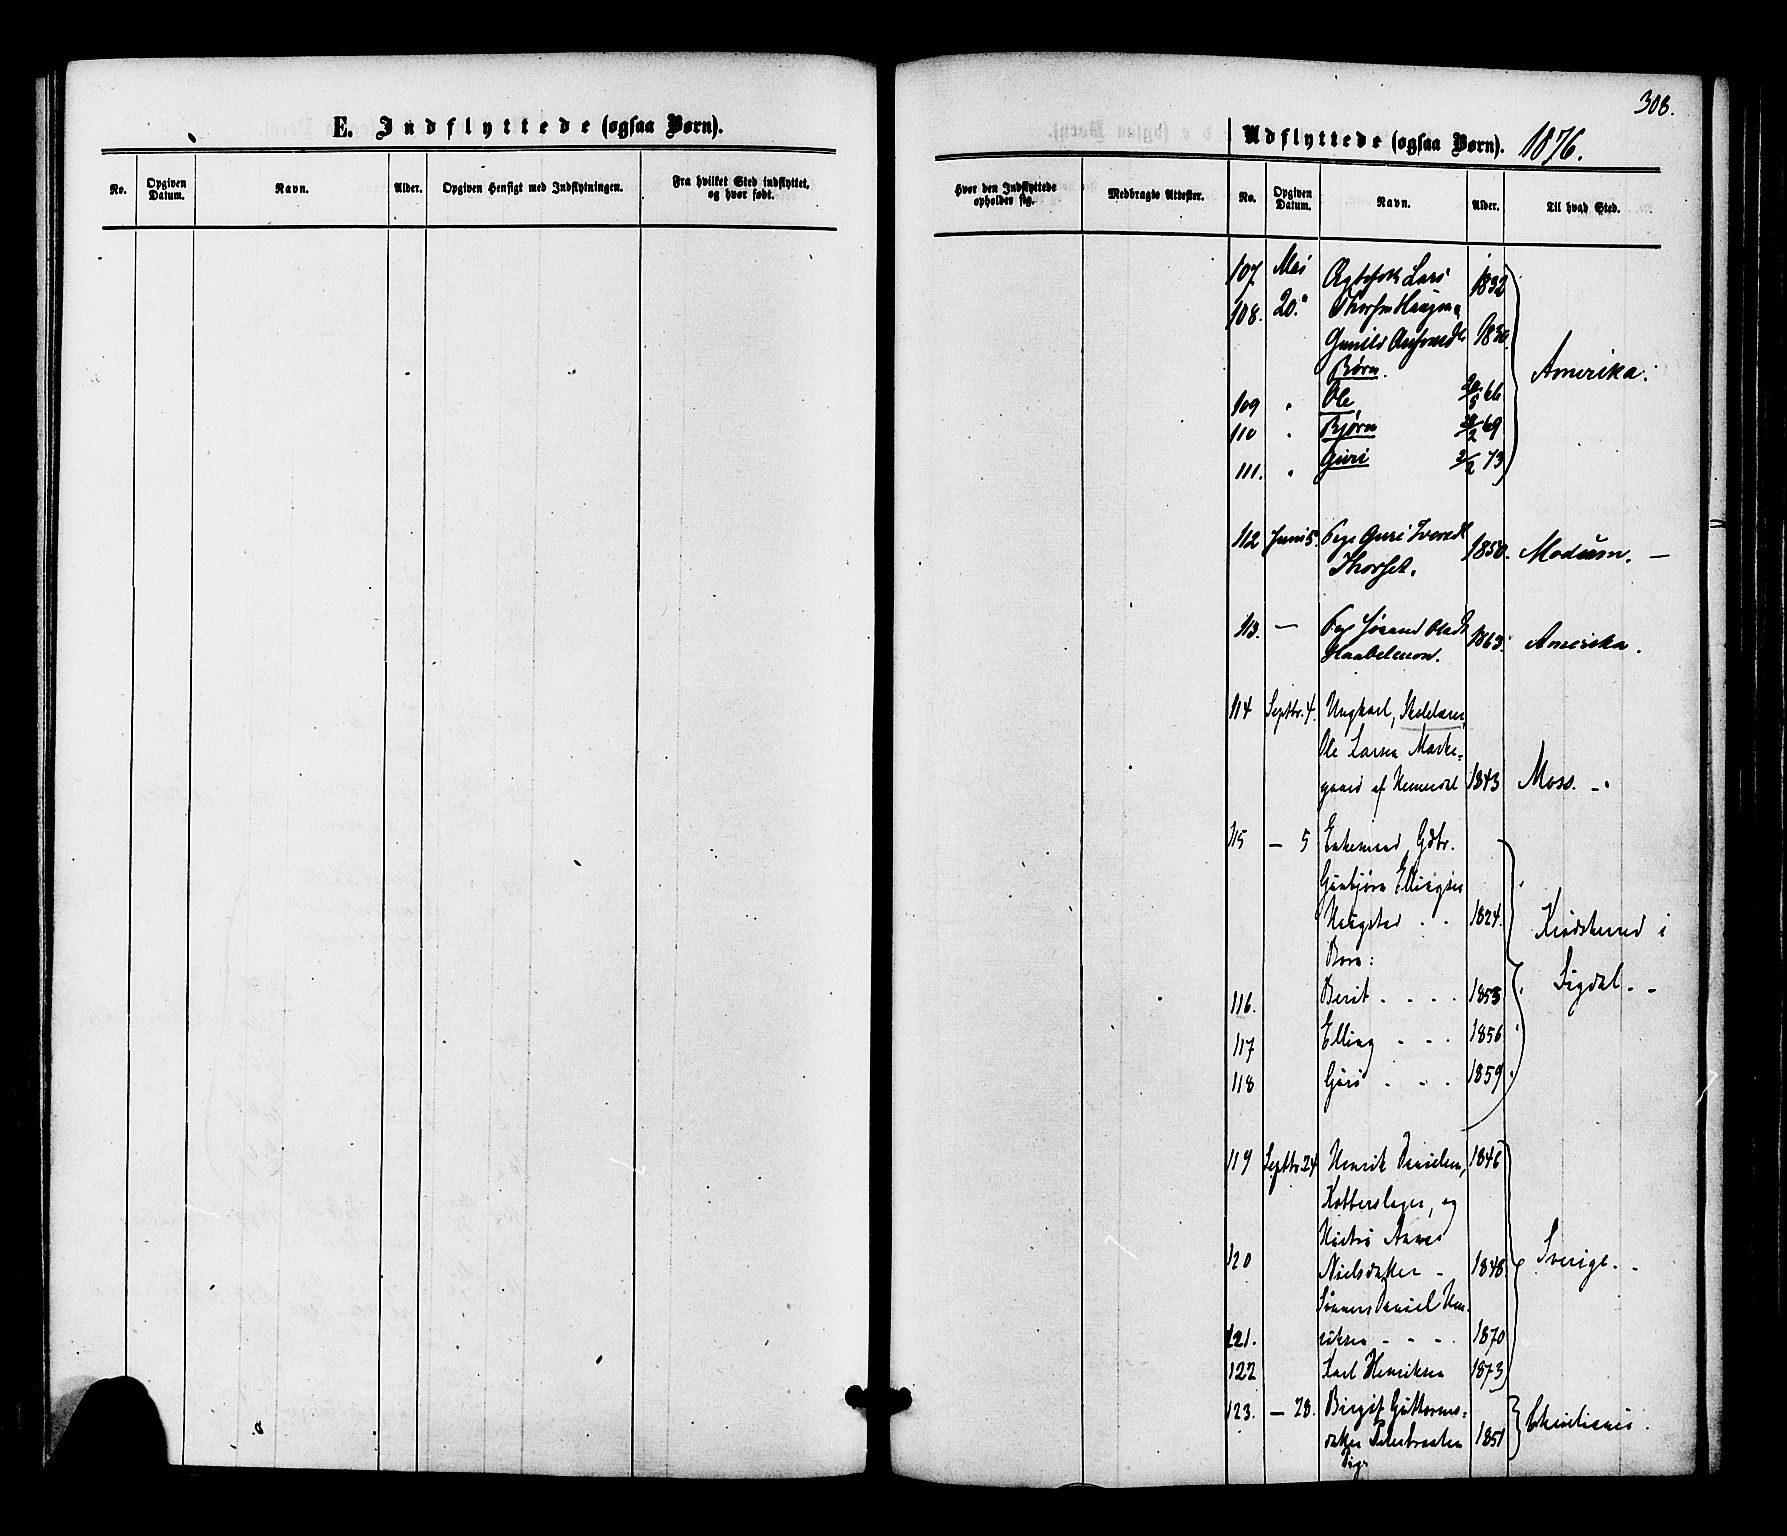 308.
E. Indflyttede (ogsaa Børn).
No.
Opgiven Datum.
Navn.
Alder.
Opgiven Hensigt med Indflytningen.
Fra hvilket Sted indflyttet, og hvor født.
Udflyttede (ogsaa Børn). 1876.
Hvor den Indflyttede opholder sig.
Medbragte Attester.
No.
Opgiven Datum.
Navn.
Alder.
Til hvad Sted.
107 Mai Lars 1832
108. 20.
Gunild 1830.
Børn. Amerika.
109 " Ole 20/5 66
110 " Bjørn 69
111. " Guri 2/2 73
112 Juni 5. Pige Guri Iversd 1850. Modum. —
Thorset.
113. — Pige Jørand Olsd 1863. Amerika.
114 Septbr. 4. Ungkarl, Skolelærer,
Ole Larsen Marke-
gaard af Hemsedal 1843 Moss. —
115 — 5 Enkemand, Gdbr.
Gunbjørn Ellingsen
Haugstad . . 1824. Krødsherred i
Børn: Sigdal. —
116. Berit . . . . 1853
117 Elling - - - 1856
118 Guri . . . 1859
119 Septbr 24 Henrik Danielsen, 1846
Kobberslager, og
120 Hustru Anne
Nielsdatter - 1848. Sverige. -
Sønner Daniel Hen-
121. riksen - - - 1870
122 Karl Henriksen 1873
123. — 28. Birgit Guttorms-
datter 1851 Christiania.
Pige